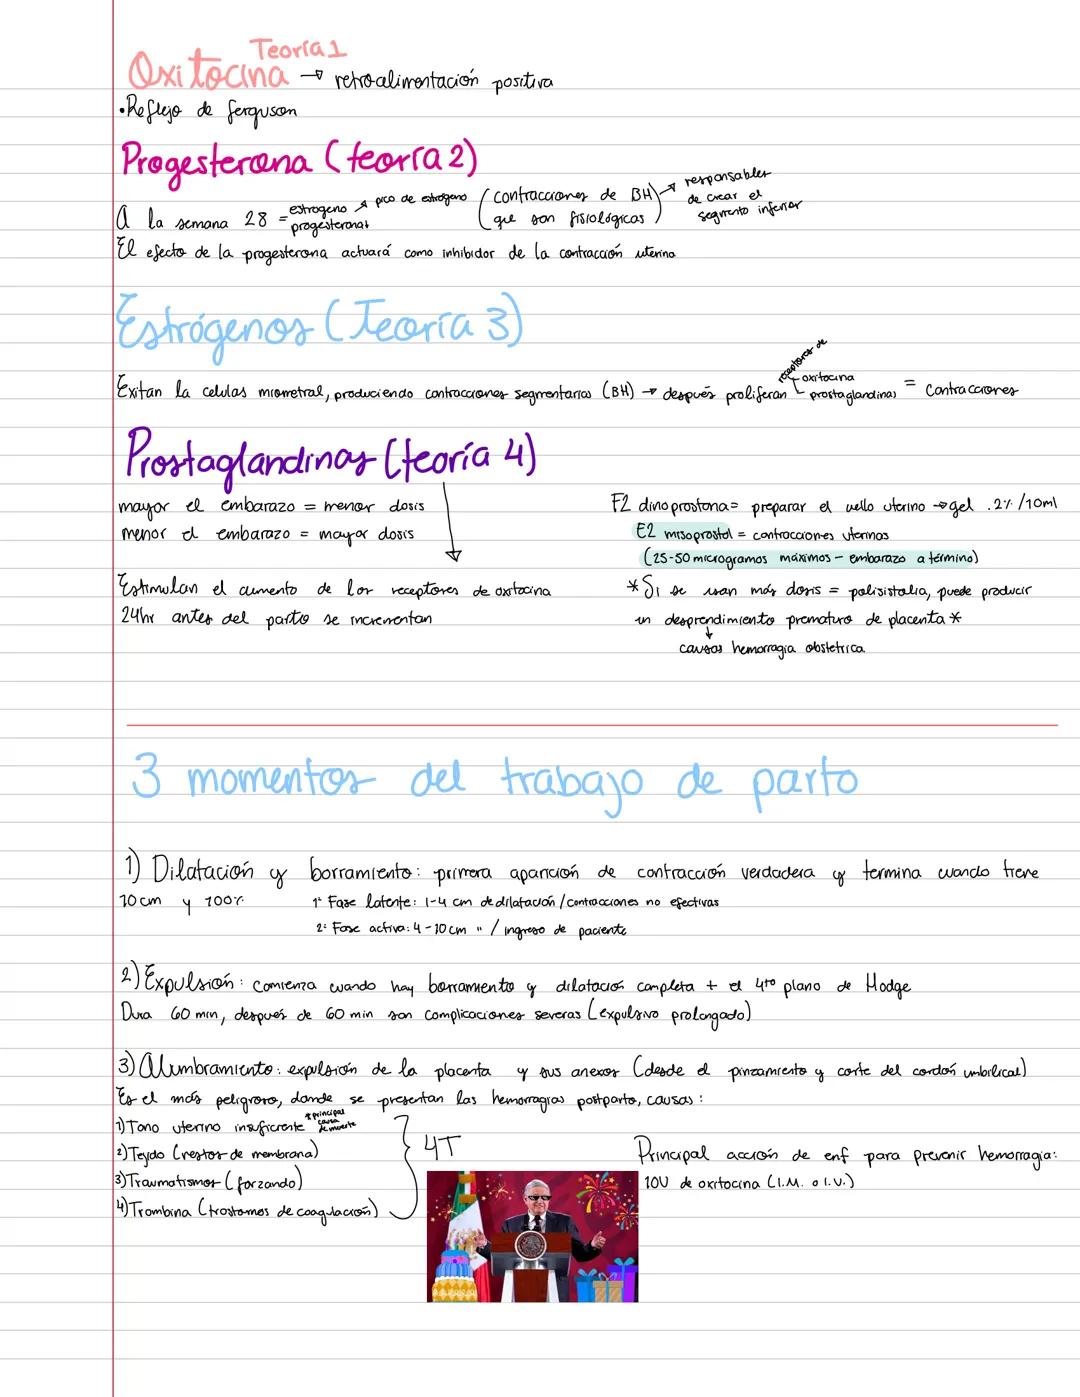 Teoría 1
Oxitocina → retroalimentación positiva
• Reflejo de ferguson
Progesterona (teoría 2)
A la semana 28 = estrogeno ↗ pico de estrogeno (contracciones de BH que son fisiológicas) → responsables de crear el segmento inferior
progesterona↓
El efecto de la progesterona actuará como inhibidor de la contracción uterina
Estrógenos (Teoría 3)
Exitan la celulas miometral, produciendo contracciones segmentarias (BH) → después proliferan receptores de oxitocina prostaglandinas = Contracciones
Prostaglandinas (teoría 4)
mayor el embarazo = menor dosis
menor el embarazo = mayor dosis
Estimulan el aumento de los receptores de oxitocina
24hr antes del parto se incrementan
F2 dinoprostona = preparar el uello uterino → gel .2% /10ml
E2 misoprostol = contracciones uterinas
(25-50 microgramos máximos - embarazo a término)
* Si se usan más dosis = polisistolia, puede producir
un desprendimiento prematuro de placenta *
↓
causas hemorragia obstetrica
3 momentos del trabajo de parto
1) Dilatación y borramiento: primera aparición de contracción verdadera y termina cuando tiene
10 cm y 100%
1ª Fase latente: 1-4 cm de dilatación / contracciones no efectivas
2ª Fase activa: 4-10 cm " / ingreso de paciente
2) Expulsión: comienza cuando hay borramiento y dilatación completa + el 4to plano de Hodge
Dura 60 min, después de 60 min son complicaciones severas (expulsivo prolongado)
3) Alumbramiento: expulsión de la placenta y sus anexos (desde el pinzamiento y corte del cordón umbilical)
Es el más peligroso, donde se presentan las hemorragias postparto, causas:
1) Tono uterino insuficiente * principal causa de muerte
2) Tejido (restos de membrana)
3) Traumatismos (forzando)
4) Trombina (trastornos de coagulación)
4T
Principal acción de enf para prevenir hemorragia:
10U de oxitocina (I.M. o I.V.)